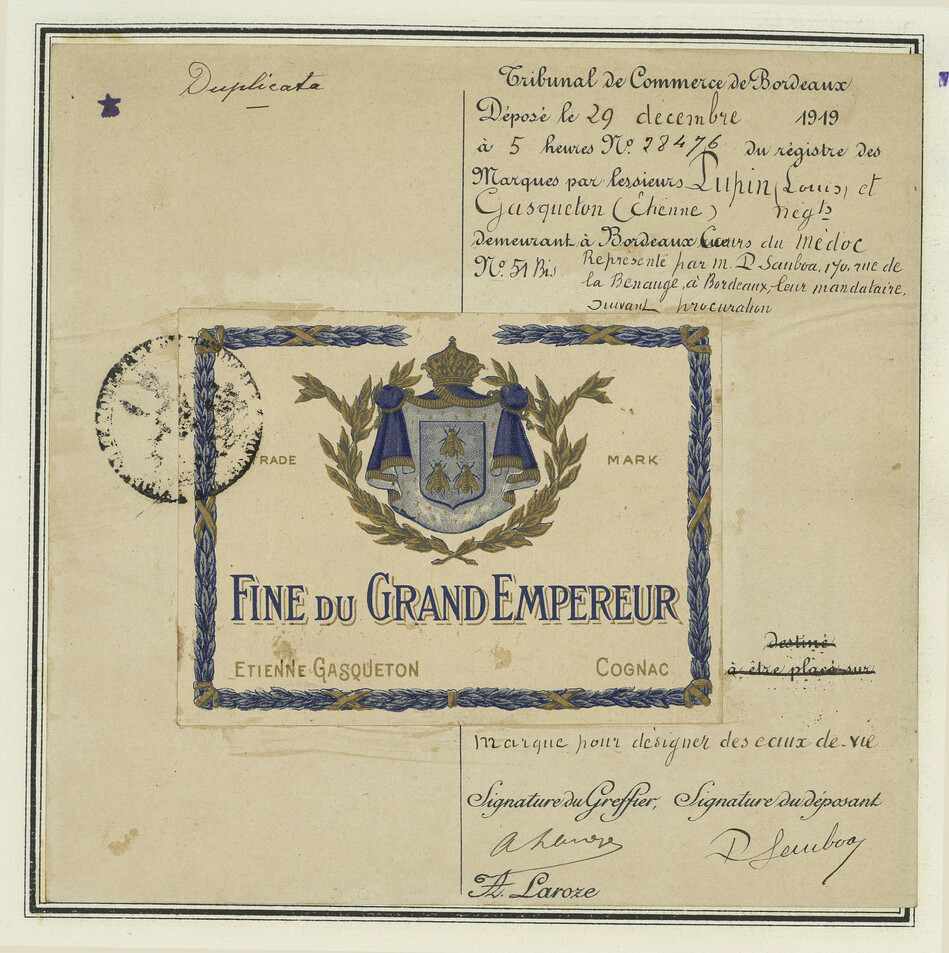 Duplicata
Tribunal de Commerce de Bordeaux
Déposé le 29 décembre 1919
à 5 heures Nº 28476 du régistre des
Marques par lessieurs Lupin (Louis) et
Gasqueton (Etienne) Négts
demeurant à Bordeaux Cours du Médoc
Nº 51 Bis Représenté par M. P Sauboa, 170, rue de
la Benauge, à Bordeaux, leur mandataire,
suivant procuration
TRADE MARK
FINE DU GRAND EMPEREUR
ETIENNE GASQUETON COGNAC
Destiné
à être placé sur
Marque pour désigner des eaux de-vie
Signature du Greffier, Signature du déposant
P Sauboa
A. Laroze